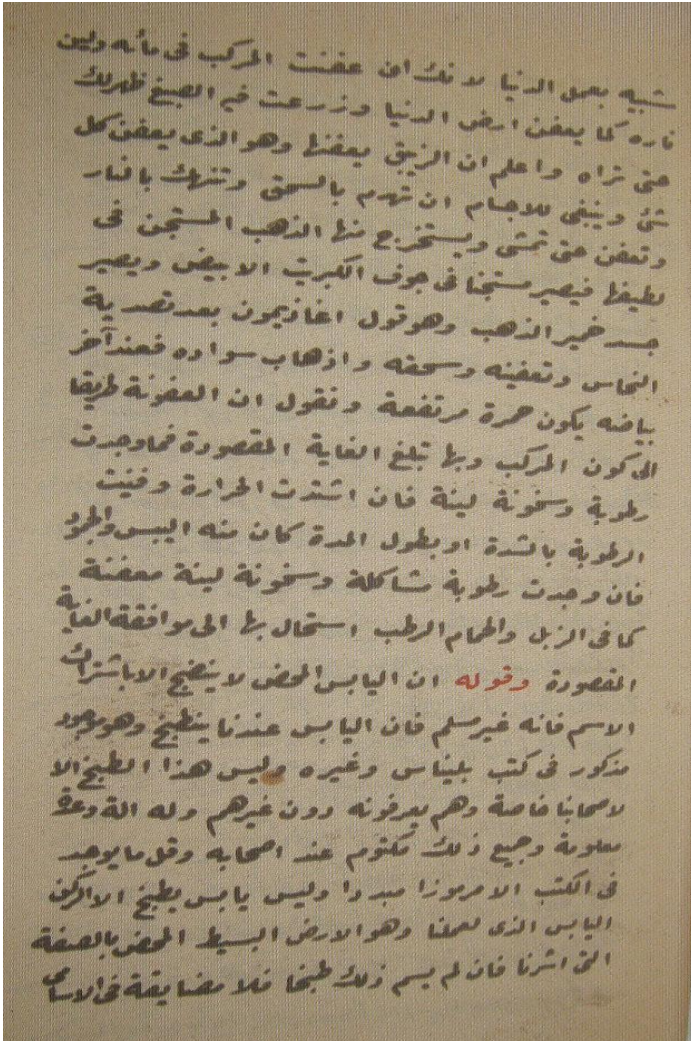 شبيه بعمل الدنيا لانك ان عفنت المركب فى مائه ولين
ناره كما يعفن ارض الدنيا وزرعت فيه الصبغ ظهر لك
حتى تراه واعلم ان الزيبق يعفنها وهو الذى يعفن كل
شئ وينبغى للاجسام ان تهدم بالسحق وتنهك بالنار
وتعفن حتى تمشى ويستخرج منها الذهب المستجن فى
لطيفها فيصير مستجنا فى جوف الكبريت الابيض ويصير
جسد خمير الذهب وهو قول اغاذيمون بعد تصدية
النحاس وتعفينه وسحقه واذهاب سواده فعند آخر
بياضه يكون حمرة مرتفعة ونقول ان العفونة طريقا
الى كون المركب وبها تبلغ الغاية المقصودة فما وجدت
رطوبة وسخونة لينة فان اشتدت الحرارة وفنيت
الرطوبة بالشدة او بطول المدة كان منه اليبس والجمود
فان وجدت رطوبة مشاكلة وسخونة لينة معفنة
كما فى الزبل والحمام الرطب استحال بها الى موافقة الغاية
المقصودة وقوله ان اليابس المحض لا ينضج الا باشتراك
الاسم فانه غير مسلم فان اليابس عندنا ينطبخ وهو موجود
مذكور فى كتب بليناس وغيره وليس هذا الطبخ الا
لاصحابنا خاصة وهم يعرفونه دون غيرهم وله الة وعدة
معلومة وجميع ذلك مكتوم عند اصحابه وقل ما يوجد
فى الكتب الا مرموزا مبددا وليس يابس يطبخ الا الركن
اليابس الذى لعملنا وهو الارض البسيط المحض بالصفة
التى اشرنا فان لم يسم ذلك طبخا فلا مضايقة فى الاسامى